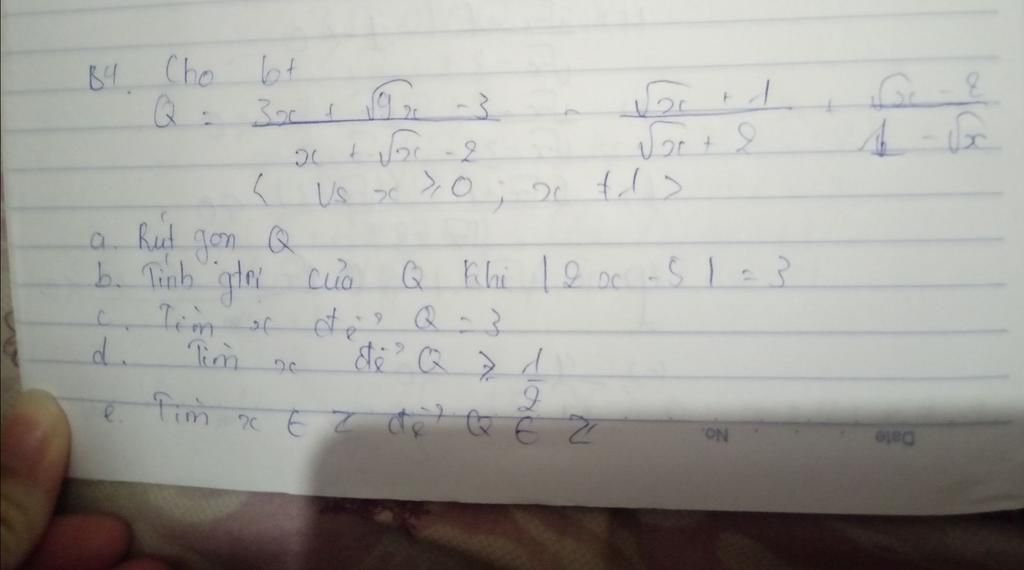 B4. Cho bt
Q = \frac{3x + \sqrt{9x} - 3}{x + \sqrt{x} - 2} - \frac{\sqrt{x} + 1}{\sqrt{x} + 2} + \frac{\sqrt{x} - 2}{1 - \sqrt{x}}
( Vs x ≥ 0 ; x ≠ 1 )
a. Rút gọn Q
b. Tính gtrị của Q khi | 2x - 5 | = 3
c. Tìm x để Q = 3
d. Tìm x để Q ≥ \frac{1}{2}
e. Tìm x ∈ Z để Q ∈ Z
No. Date